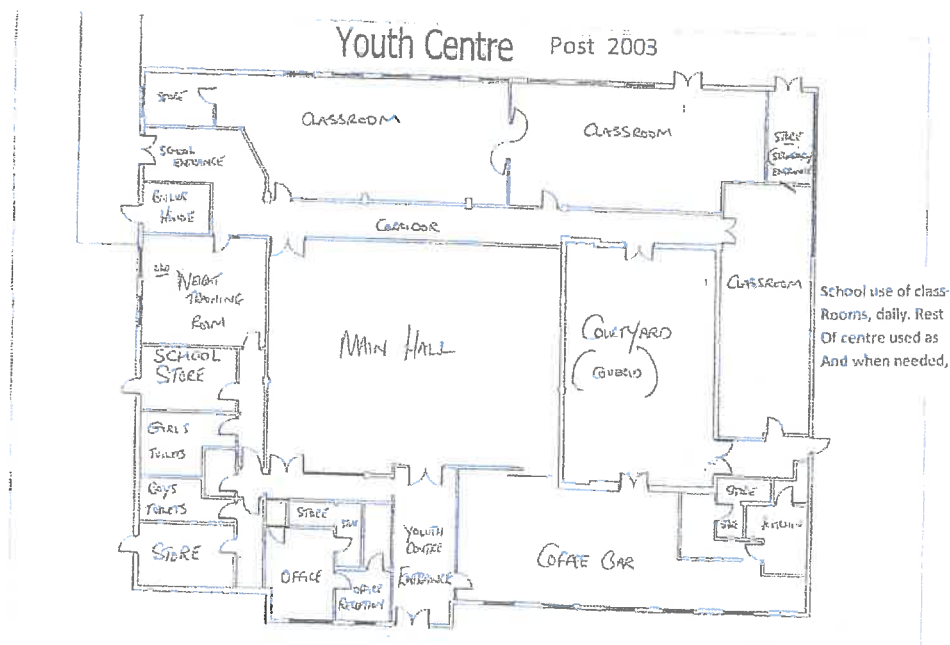 Youth Centre Post 2003
STORE
CLASSROOM
CLASSROOM
STORE
ENTRANCE
SCHOOL
ENTRANCE
BOILER
HOUSE
CORRIDOR
WEIGHT
TRAINING
ROOM
MAIN HALL
COURTYARD
CLASSROOM
School use of class-
Rooms, daily. Rest
Of centre used as
And when needed,
SCHOOL
STORE
GIRLS
TOILETS
BOYS
TOILETS
STORE
STORE
OFFICE
OFFICE
RECEPTION
YOUTH
CENTRE
ENTRANCE
COFFEE BAR
STORE
STORE
KITCHEN